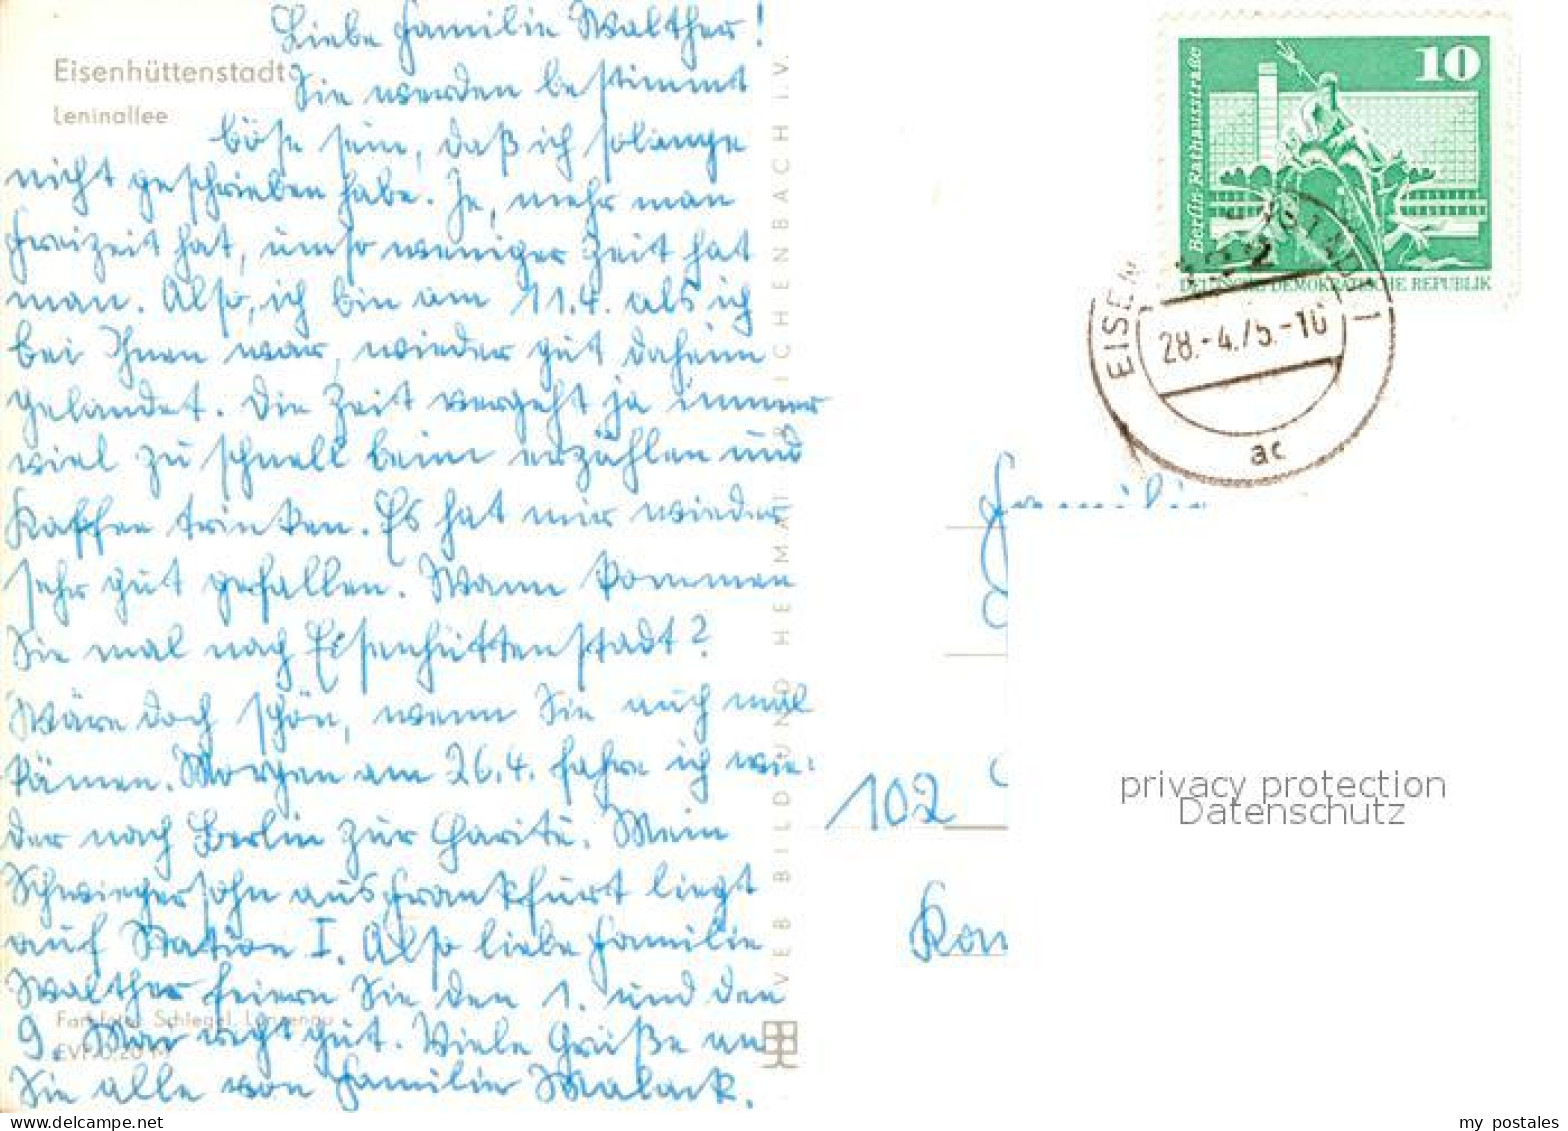 Eisenhüttenstadt
Leninallee
Liebe Familie Walther!
Sie werden bestimmt
böse sein, daß ich solange
nicht geschrieben habe. Je, mehr man
Freizeit hat, umso weniger Zeit hat
man. Also, ich bin am 11.4. als ich
bei Ihnen war, wieder gut daheim
gelandet. Die Zeit vergeht ja immer
viel zu schnell beim erzählen und
Kaffee trinken. Es hat mir wieder
sehr gut gefallen. Wann kommen
Sie mal nach Eisenhüttenstadt?
Wäre doch schön, wenn Sie auch mal
kämen. Morgen am 26.4. fahre ich wie-
der nach Berlin zur Charité. Mein
Schwiegersohn aus Frankfurt liegt
auf Station I. Also liebe Familie
Walther feiern Sie den 1. und den
9. Mai recht gut. Viele Grüße an
Sie alle von Familie Walack.
VEB BILD UND HEIMAT REICHENBACH I.V.
10
Berlin Rathausstraße
DEUTSCHE DEMOKRATISCHE REPUBLIK
28.-4.75.-10
ac
Familie
102
privacy protection
Datenschutz
my postales